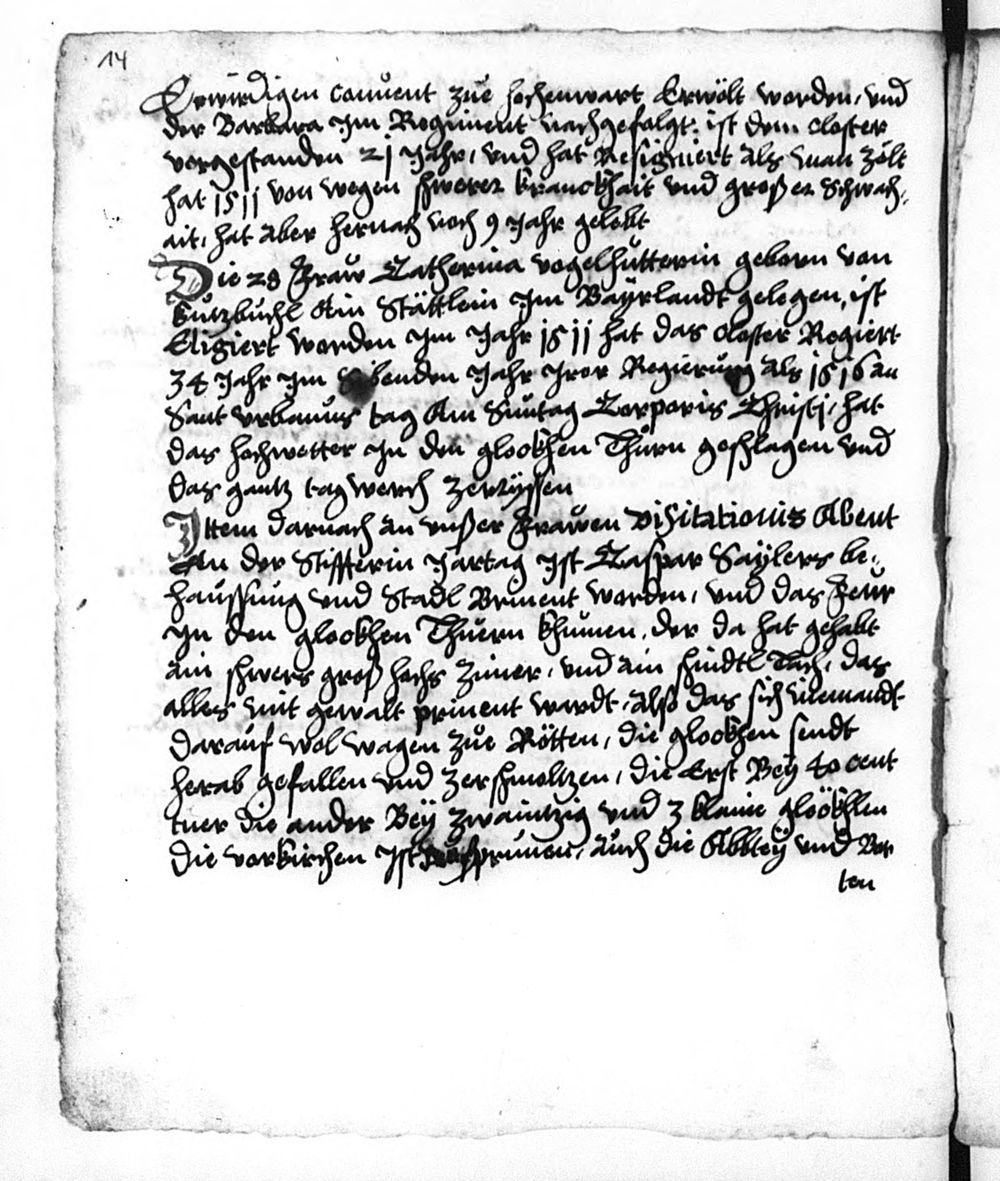 14
Erwirdigen Conuent züe hochenwart Erwölt worden, vnd
der Barbara Jm Regiment nachgefolgt: ist dem closter
vorgestanden 21 Jahr, vnd hat Resigniert Als man zölt
hat 1511 von wegen schwerer kranckhait vnd großer Schwach,
ait, hat Aber hernach noch 9 Jahr gelebt
Die 28 Fraw Catherina vogelhütterin geborn von
kutzbüchl Ain Stättlein Jm Bayrlandt gelegen, ist
Eligiert worden Jm Jahr 1511 hat das closter Regiert
34 Jahr Jm Sibenden Jahr Jrer Regierung Als 1516 An
Sant vrbanus tag Am Suntag Corporis Christj, hat
das hochwetter Jn den glockhen Thürn geschlagen vnd
das gantz tagwerch zerrÿssen
Jttem darnach an vnßer Frawen visitationis Abent
An der Stiffterin Jartag Jst Caspar Saÿlers be:
haussung vnd Stadl Brinent worden, vnd das Feür
Jn den glockhen Thuern khumen, der da hat gehabt
ain schwers groß hochs zimer, vnd ain schindtl Tach, das
alles mit gewalt prinent wardt, Also das sich niemandt
darauf wol wagen züe Rötten, die glockhen sendt
herab gefallen vnd zerschmoltzen, die Erst Beÿ 40 cent
tner die ander Beÿ zwaintzig vnd 3 klaine glöckhlen
die vorkirchen Jst prunen, auch die Abbteÿ vnd Bor
ten